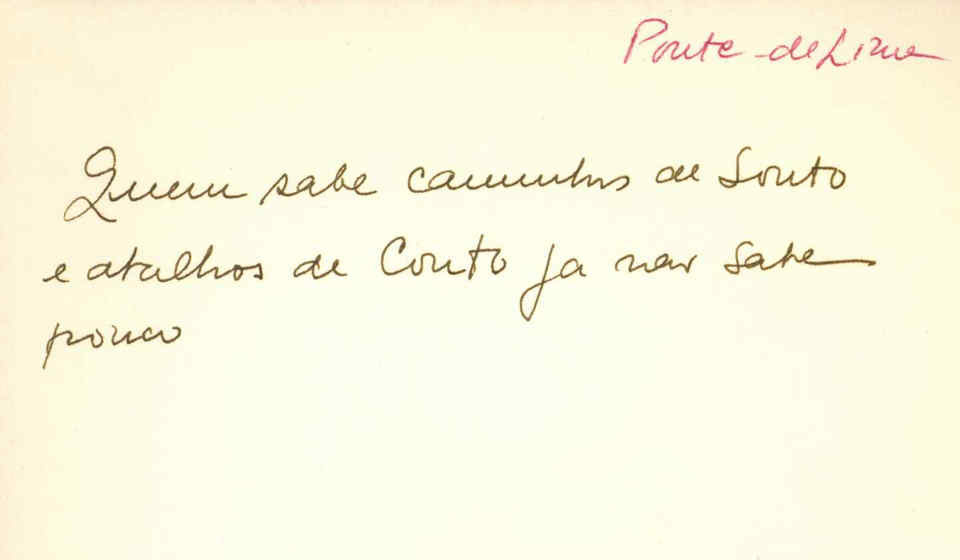 Ponte-de Lima
Quem sabe caminhos de Souto
e atalhos de Couto ja nao sabe
pouco